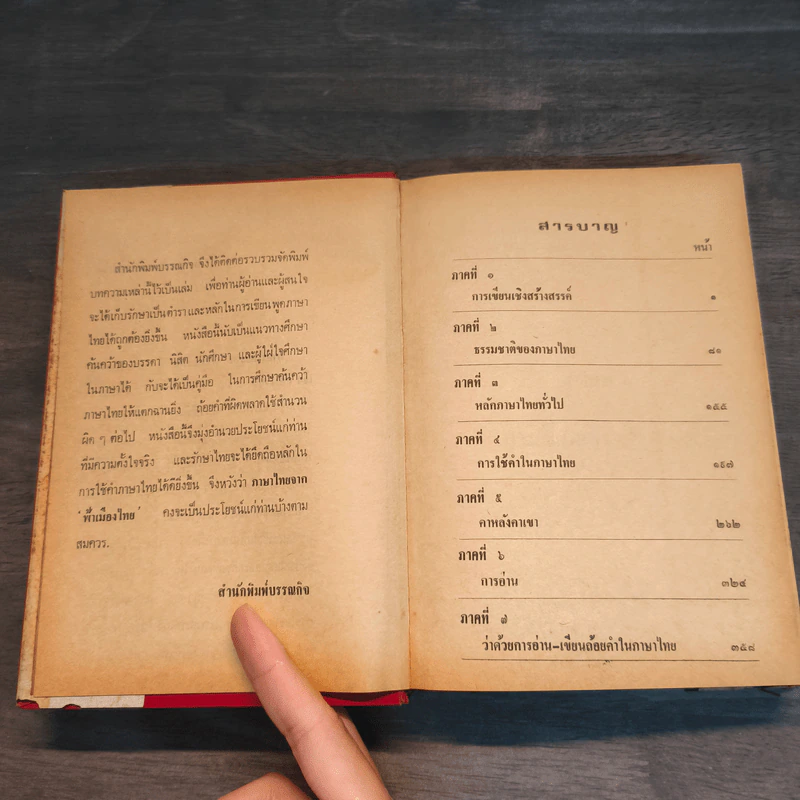 สำนักพิมพ์บรรณกิจ จึงได้คิดต่อรวบรวมจัดพิมพ์
บทความเหล่านี้ไว้เป็นเล่ม เพื่อท่านผู้อ่านและผู้สนใจ
จะได้เก็บรักษาเป็นตำราและหลักในการเขียนพูดภาษา
ไทยได้ถูกต้องยิ่งขึ้น หนังสือนี้นับเป็นแนวทางศึกษา
ค้นคว้าของบรรดา นิสิต นักศึกษา และผู้ใฝ่ใจศึกษา
ในภาษาได้ กับจะได้เป็นคู่มือ ในการศึกษาค้นคว้า
ภาษาไทยให้แตกฉานยิ่ง ถ้อยคำที่ผิดพลาดใช้สำนวน
ผิด ๆ ต่อไป หนังสือนี้จึงมุ่งอำนวยประโยชน์แก่ท่าน
ที่มีความตั้งใจจริง และรักภาษาไทยจะได้ยึดถือหลักใน
การใช้คำภาษาไทยได้ดียิ่งขึ้น จึงหวังว่า ภาษาไทยจาก
'ฟ้าเมืองไทย' คงจะเป็นประโยชน์แก่ท่านบ้างตาม
สมควร.
สำนักพิมพ์บรรณกิจ
สารบาญ
หน้า
ภาคที่ ๑
การเขียนเชิงสร้างสรรค์ ๑
ภาคที่ ๒
ธรรมชาติของภาษาไทย ๘๑
ภาคที่ ๓
หลักภาษาไทยทั่วไป ๑๕๕
ภาคที่ ๔
การใช้คำในภาษาไทย ๑๙๗
ภาคที่ ๕
คาหลังคาเขา ๒๖๒
ภาคที่ ๖
การอ่าน ๓๒๔
ภาคที่ ๗
ว่าด้วยการอ่าน-เขียนถ้อยคำในภาษาไทย ๓๕๘